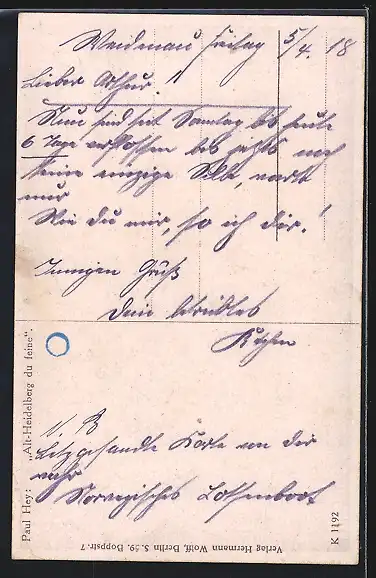 Weidenau Freitag 5/4. 18
Lieber Arthur!
Nun sind seit Sonntag bis heute
6 Tage verflossen bis jetzt noch
keine einzige Silbe, warte
nur
Wie du mir, so ich dir!
Innigen Gruß
Dein betrübtes
N. B.
Letzgesandte Karte von der
Norwegisches Lotsenboot
Paul Hey: „Alt-Heidelberg du feine“.
Verlag Hermann Wolff, Berlin S. 59. Boppstr. 7
K 1192